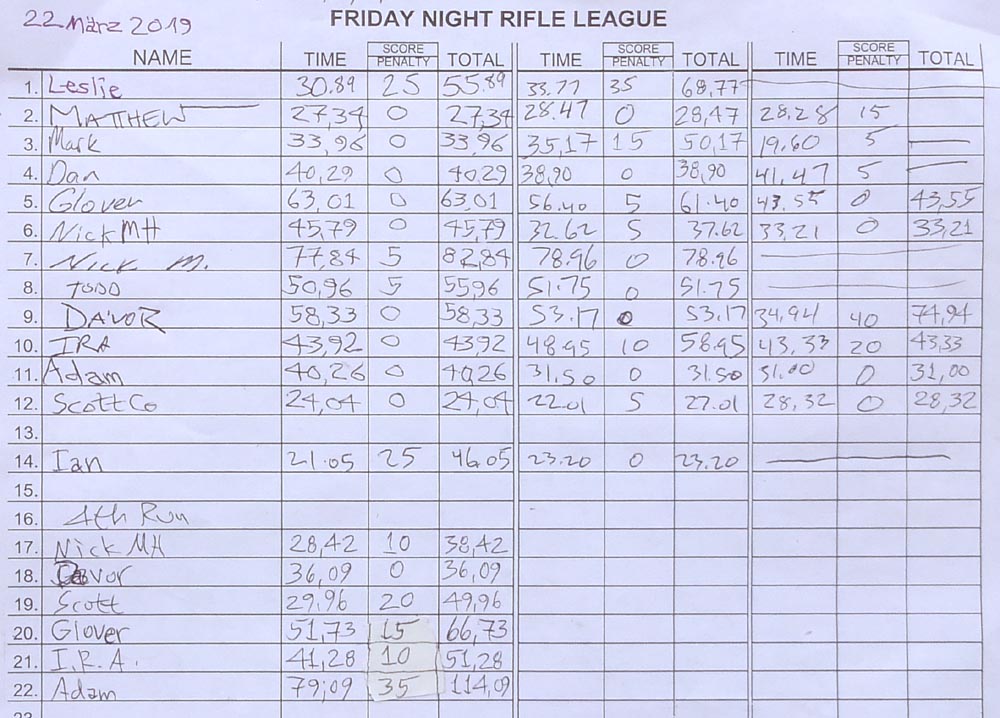 22 März 2019
FRIDAY NIGHT RIFLE LEAGUE
NAME TIME SCORE PENALTY TOTAL TIME SCORE PENALTY TOTAL TIME SCORE PENALTY TOTAL
1. Leslie 30.89 25 55.89 33.77 35 68,77
2. MATTHEW 27,34 0 27,34 28.47 0 28,47 28,28 15
3. Mark 33,96 0 33,96 35,17 15 50,17 19.60 5
4. Dan 40,29 0 40,29 38,90 0 38,90 41,47 5
5. Glover 63,01 0 63,01 56.40 5 61.40 43.55 0 43,55
6. Nick MH 45,79 0 45,79 32.62 5 37.62 33,21 0 33,21
7. Nick M. 77,84 5 82,84 78.96 0 78.96
8. TODD 50,96 5 55,96 51.75 0 51.75
9. DA'VOR 58,33 0 58,33 53.17 0 53.17 34,94 40 74,94
10. IRA 43,92 0 43,92 48.95 10 58.95 43,33 20 43,33
11. Adam 40,26 0 40,26 31.50 0 31.50 31.00 0 31,00
12. Scott Co 24,04 0 24,04 22.01 5 27.01 28,32 0 28,32
13.
14. Ian 21.05 25 46.05 23.20 0 23.20
15.
16. 4th Run
17. Nick MH 28,42 10 38,42
18. Davor 36,09 0 36,09
19. Scott 29,96 20 49,96
20. Glover 51,73 15 66,73
21. I.R.A. 41,28 10 51,28
22. Adam 79,09 35 114,09